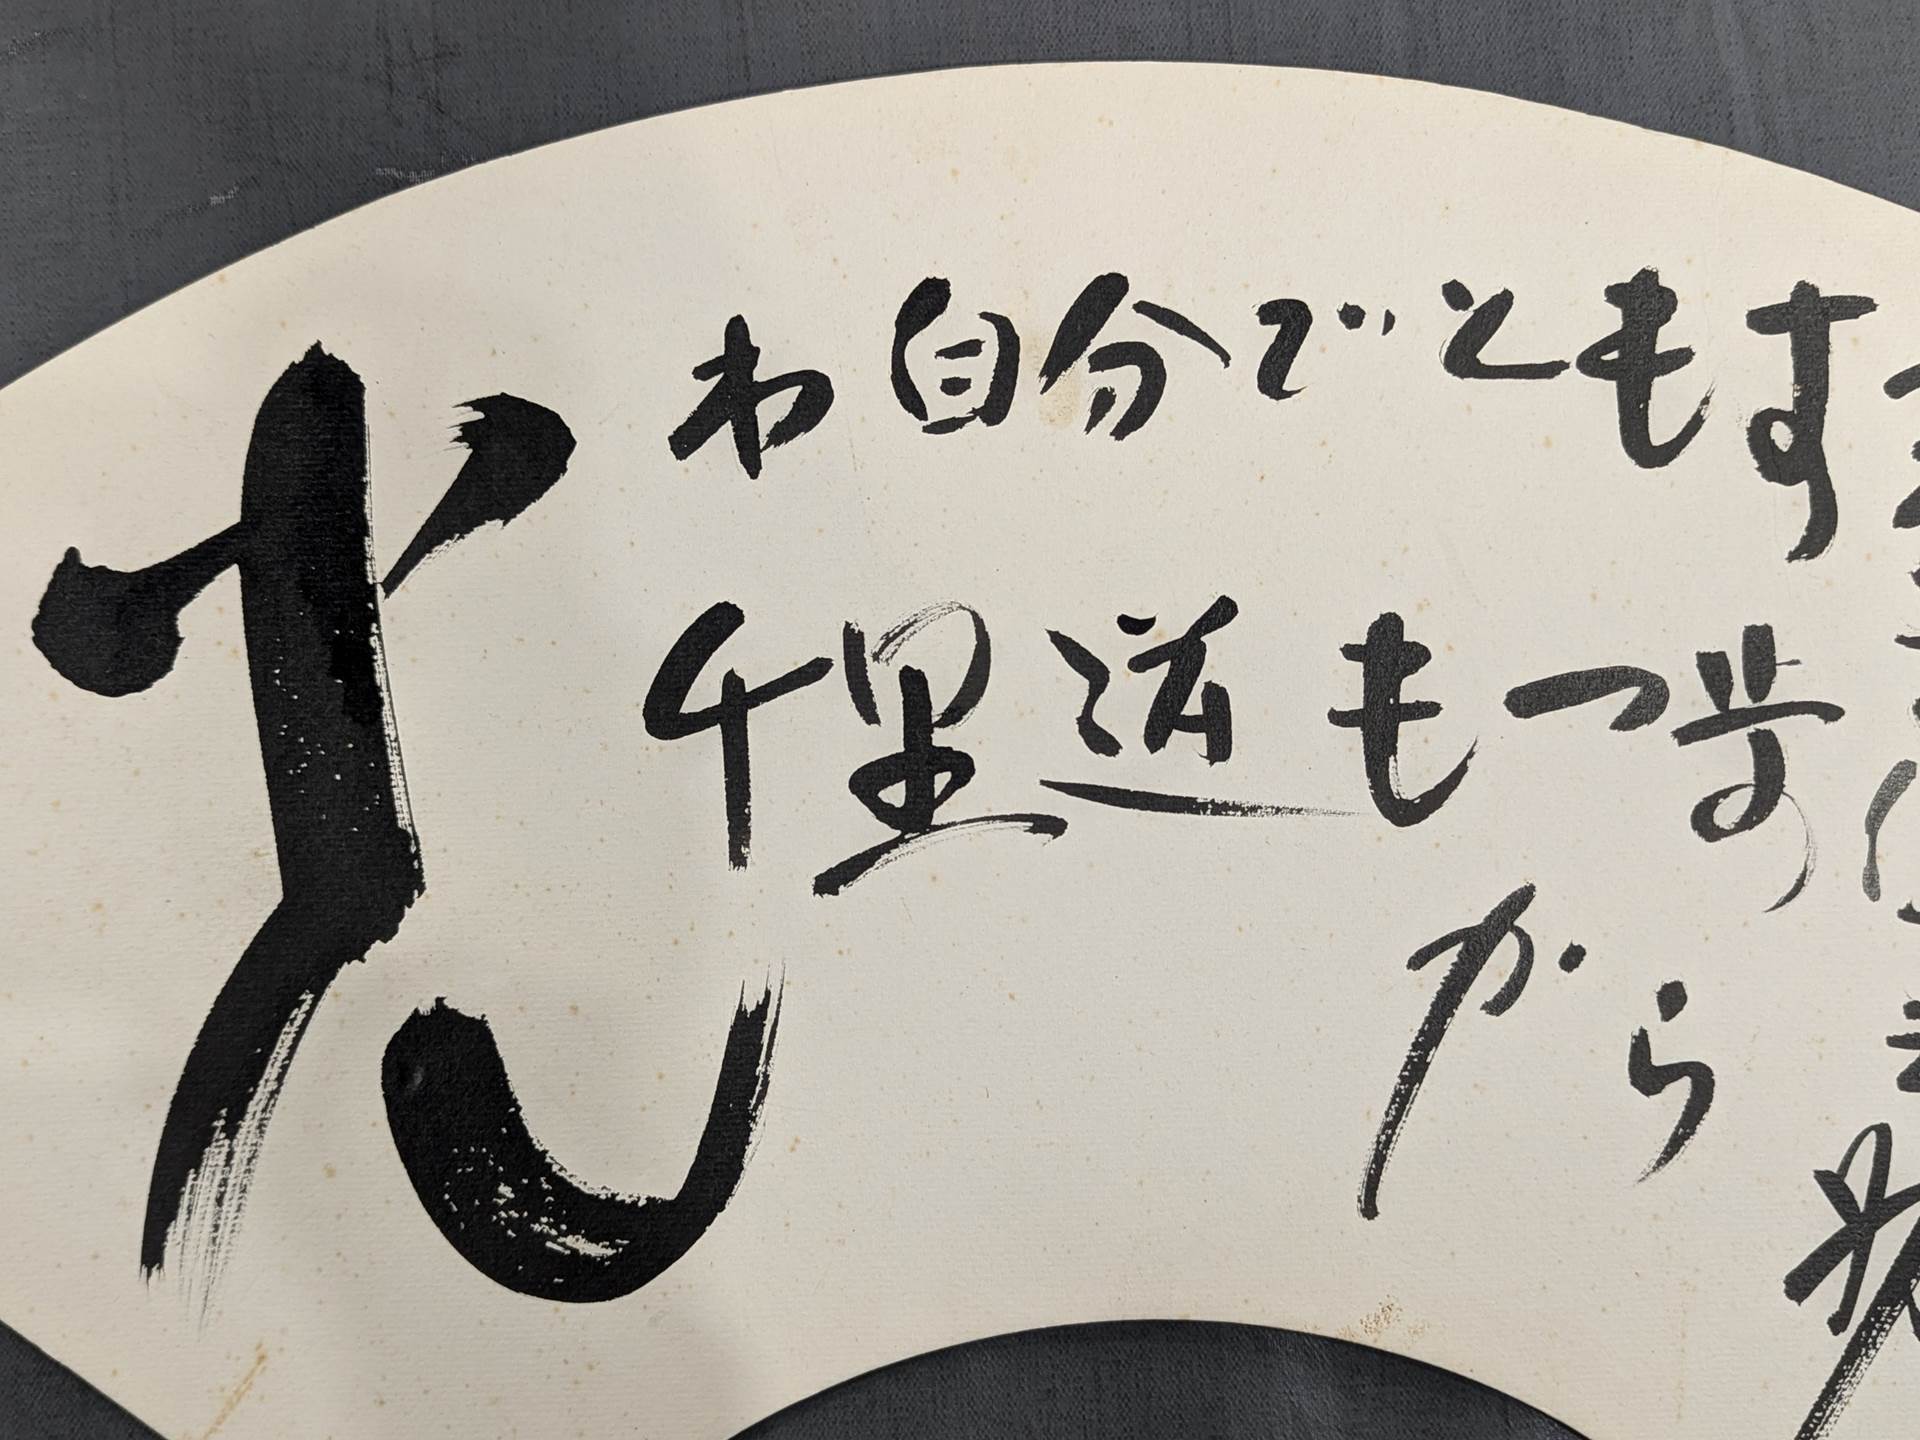 光
わ自分でともす
千里道も一歩
から